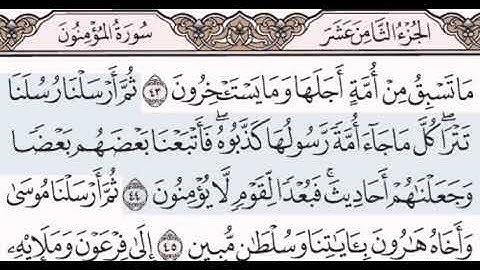 سُورَةُ الْمُؤْمِنُونَ الجُزْءُ الثَّامِنَ عَشَرَ
مَا تَسْبِقُ مِنْ أُمَّةٍ أَجَلَهَا وَمَا يَسْتَـْٔخِرُونَ ٤٣ ثُمَّ أَرْسَلْنَا رُسُلَنَا
تَتْرَا ۖ كُلَّ مَا جَآءَ أُمَّةً رَّسُولُهَا كَذَّبُوهُ ۖ فَأَتْبَعْنَا بَعْضَهُم بَعْضًا
وَجَعَلْنَٰهُمْ أَحَادِيثَ ۚ فَبُعْدًا لِّقَوْمٍ لَّا يُؤْمِنُونَ ٤٤ ثُمَّ أَرْسَلْنَا مُوسَىٰ
وَأَخَاهُ هَٰرُونَ بِـَٔايَٰتِنَا وَسُلْطَٰنٍ مُّبِينٍ ٤٥ إِلَىٰ فِرْعَوْنَ وَمَلَإِي۟هِۦ